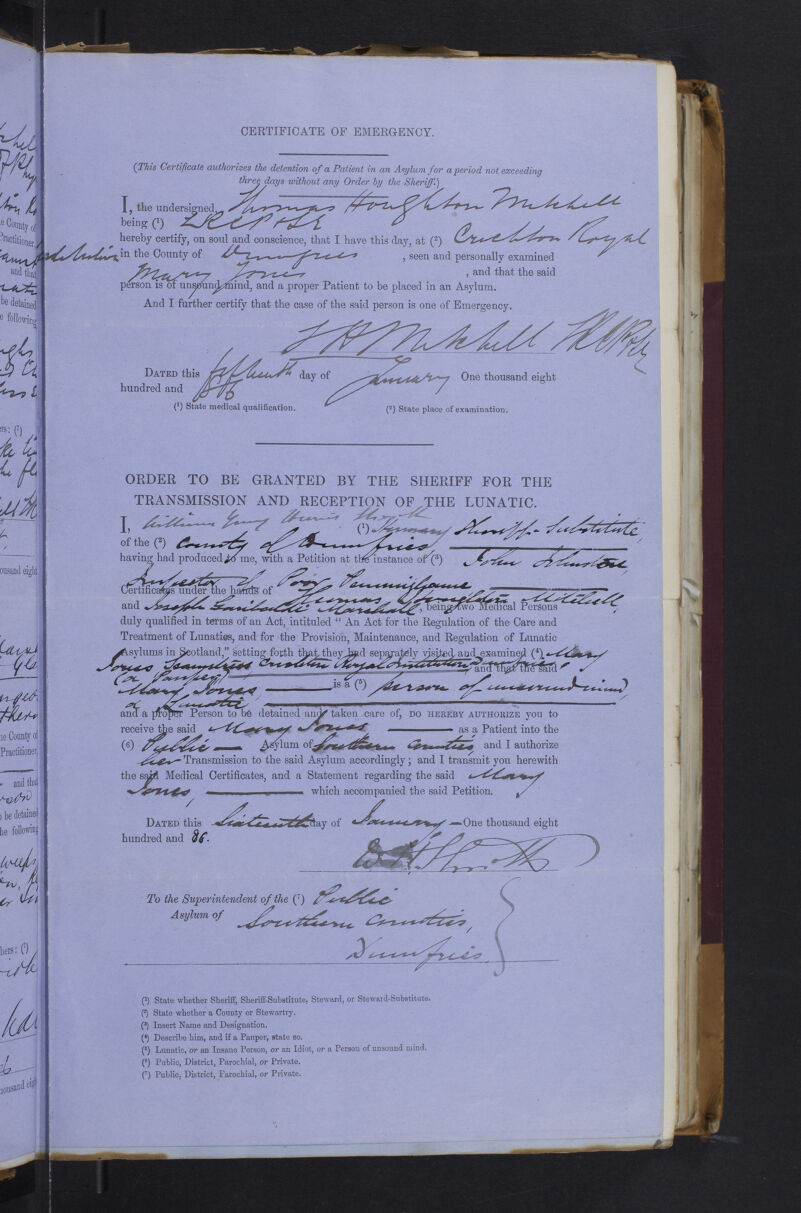 CERTIFICATE OF EMERGENCY.
(This Certificate authorizes the detention of a Patient in an Asylum for a period not exceeding
three days without any Order by the Sheriff.)
I, the undersigned Thomas Houghton Mitchell
being (1) LRCP & LR
hereby certify, on soul and conscience, that I have this day, at (2) Crichton Royal
Institution in the County of Dumfries , seen and personally examined
Mary Jones , and that the said
person is of unsound mind, and a proper Patient to be placed in an Asylum.
And I further certify that the case of the said person is one of Emergency.
T H Mitchell
DATED this fifteenth day of January One thousand eight
hundred and 86
(1) State medical qualification. (2) State place of examination.
ORDER TO BE GRANTED BY THE SHERIFF FOR THE
TRANSMISSION AND RECEPTION OF THE LUNATIC.
I, William (1) Sheriff-Substitute,
of the (2) County of Dumfries,
having had produced to me, with a Petition at the instance of (3) John Johnstone
Inspector of Poor Penninghame
Certificates under the hands of Thomas Houghton Mitchell,
and Joseph Garibaldi Marshall, being two Medical Persons
duly qualified in terms of an Act, intituled “ An Act for the Regulation of the Care and
Treatment of Lunatics, and for the Provision, Maintenance, and Regulation of Lunatic
Asylums in Scotland,” setting forth that they had separately visited and examined (4) Mary
Jones Seamstress Crichton Royal Institution Dumfries,
(a Pauper) and that the said
Mary Jones is a (5) person of unsound mind,
a Lunatic,
and a proper Person to be detained and taken care of, DO HEREBY AUTHORIZE you to
receive the said Mary Jones as a Patient into the
(6) Public Asylum of Southern Counties and I authorize
her Transmission to the said Asylum accordingly; and I transmit you herewith
the said Medical Certificates, and a Statement regarding the said Mary
Jones, which accompanied the said Petition.
DATED this Sixteenth day of January One thousand eight
hundred and 86.
To the Superintendent of the (7) Public
Asylum of Southern Counties,
Dumfries.
(1) State whether Sheriff, Sheriff-Substitute, Steward, or Steward-Substitute.
(2) State whether a County or Stewartry.
(3) Insert Name and Designation.
(4) Describe him, and if a Pauper, state so.
(5) Lunatic, or an Insane Person, or an Idiot, or a Person of unsound mind.
(6) Public, District, Parochial, or Private.
(7) Public, District, Parochial, or Private.